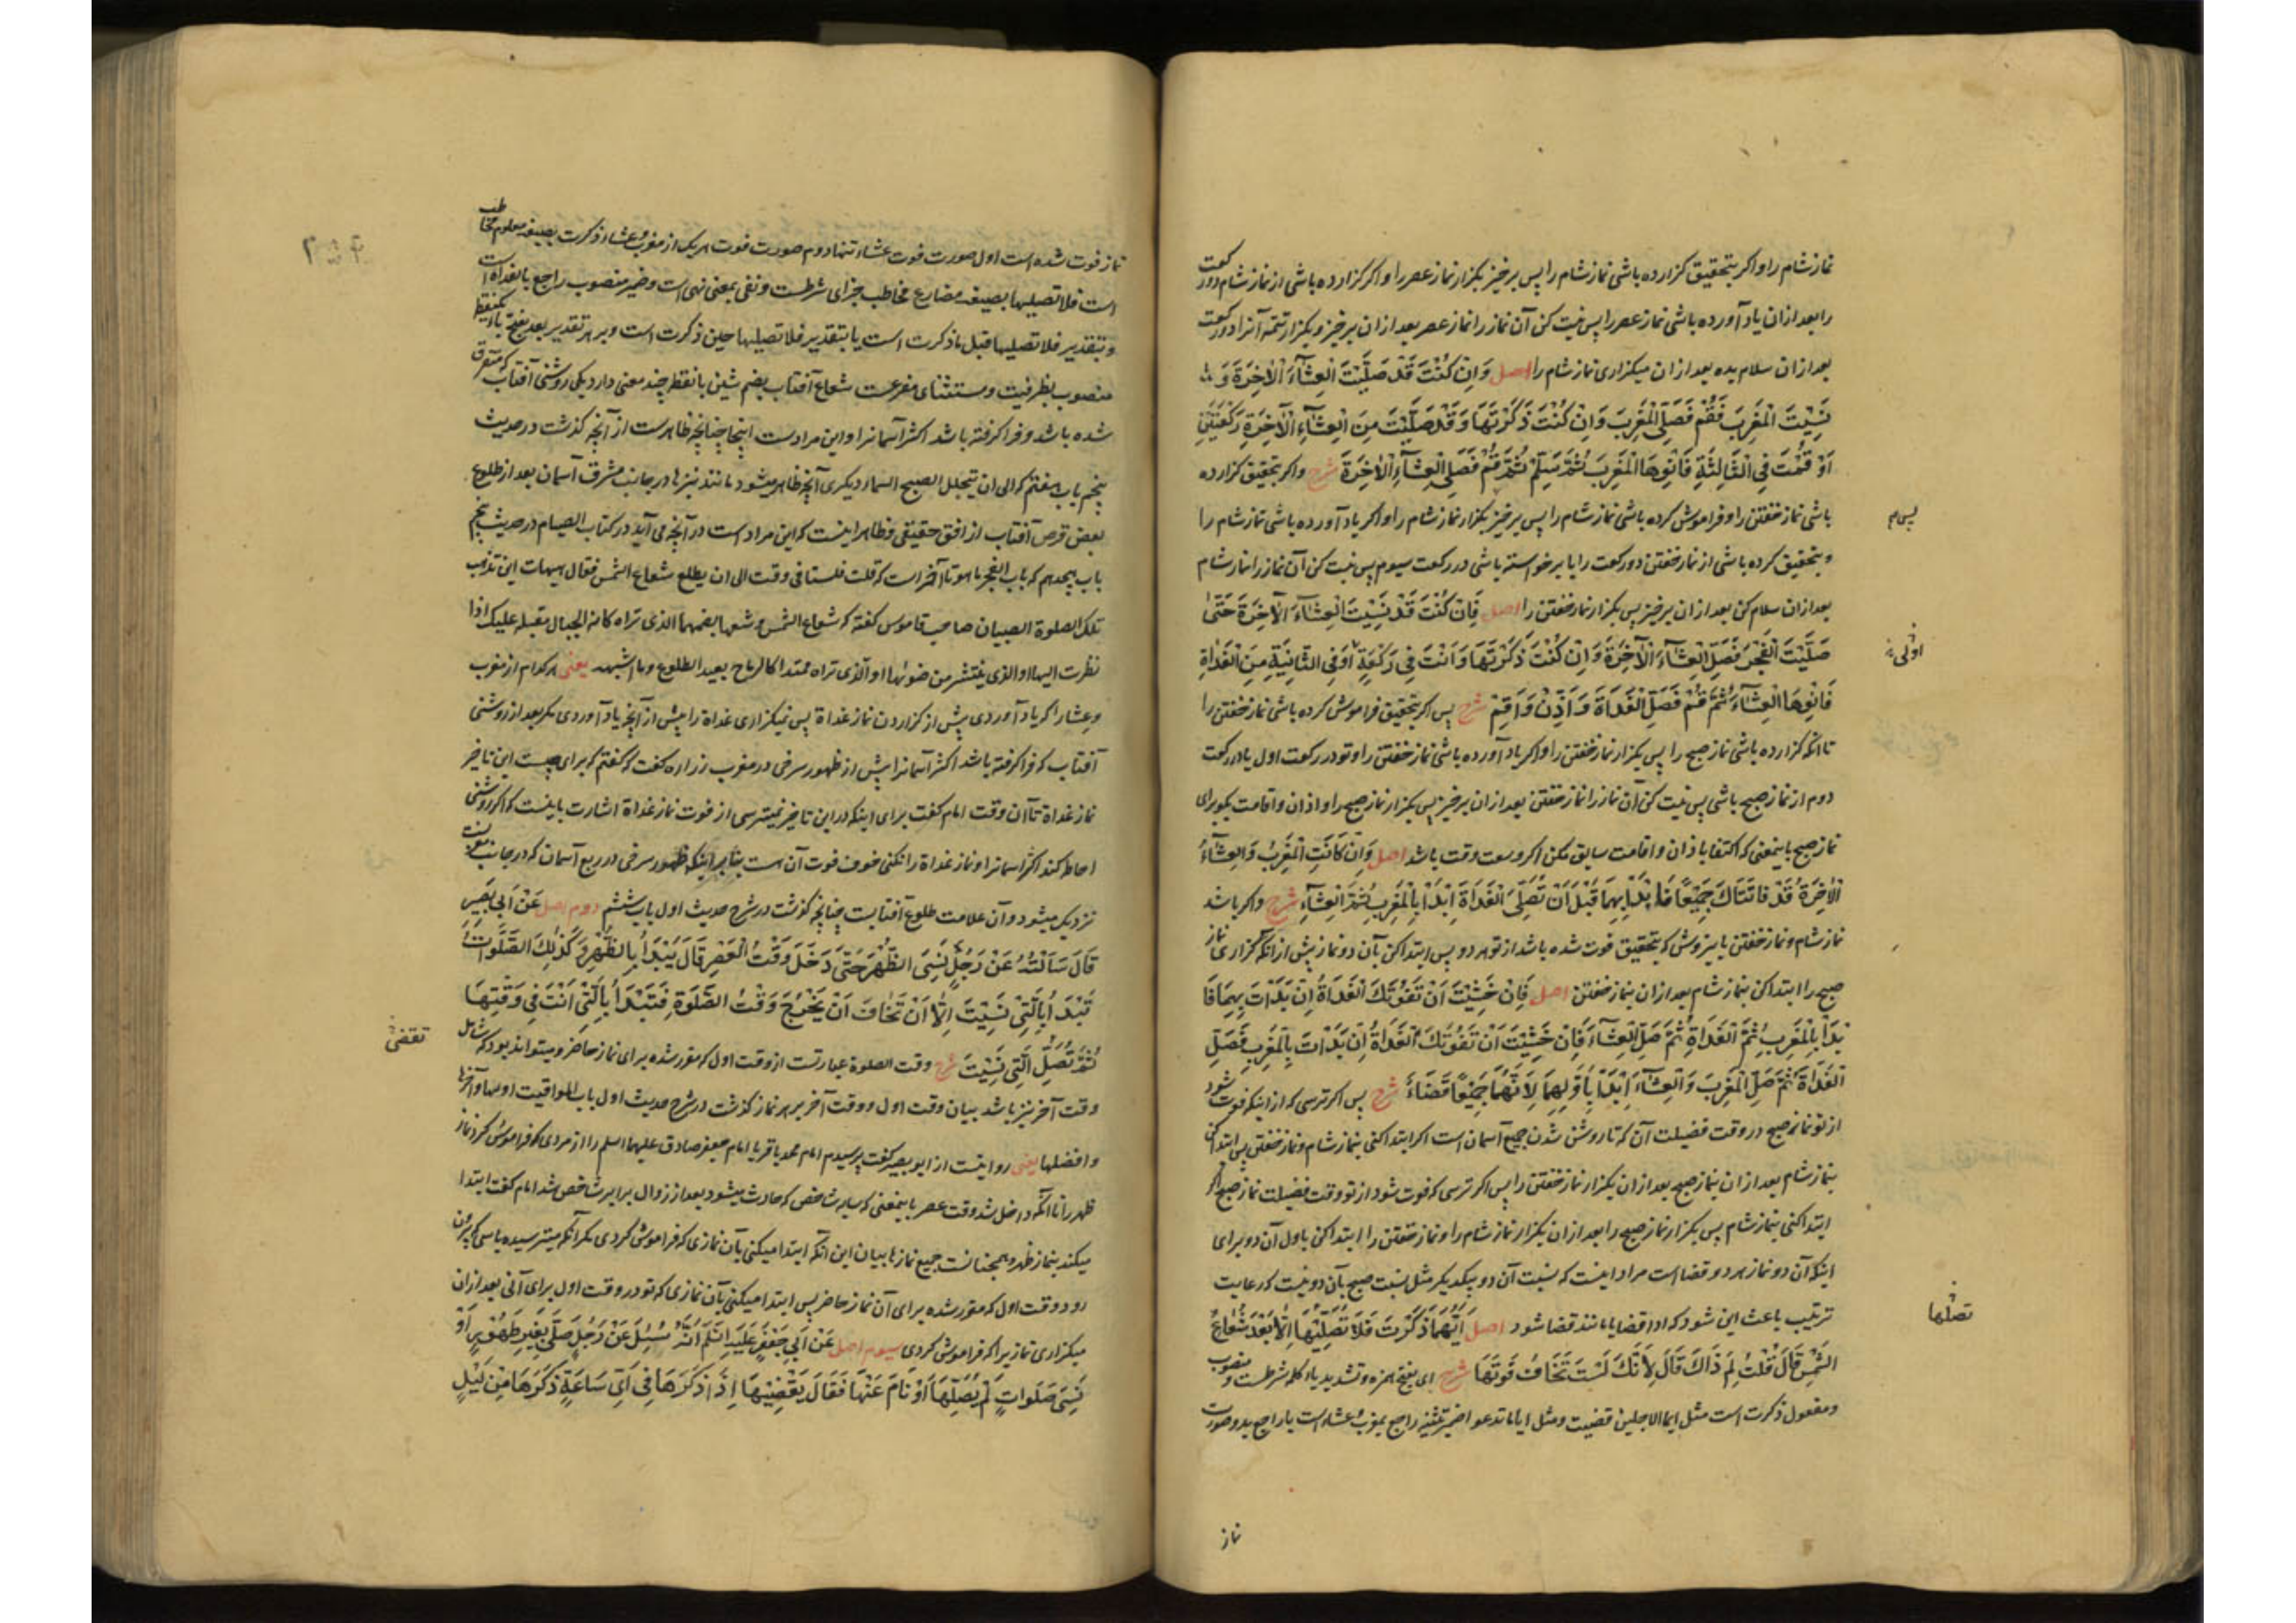 نماز شام را و اکر بتحقیق کزارده باشی نماز شام را پس برخیز بکزار نماز عصر را و اکر کزارده باشی از نماز شام دو رکعت
را بعد ازان یاد آورده باشی نماز عصر را پس نیت کن آن نماز را نماز عصر بعد ازان برخیز و بکزار تتمه آنرا دو رکعت
بعد ازان سلام بده بعد ازان میکزاری نماز شام را اصل وَاِن کُنْتَ قَدْ صَلَّیْتَ الْعِشَآءَ الْآخِرَةَ وَ
نَسِیْتَ الْمَغْرِبَ فَقُمْ فَصَلِّ الْمَغْرِبَ وَاِنْ کُنْتَ ذَکَرْتَهَا وَقَدْ صَلَّیْتَ مِنَ الْعِشَآءِ الْآخِرَةِ رَکْعَتَیْنِ
اَوْ قُمْتَ فِی الثَّالِثَةِ فَانْوِهَا الْمَغْرِبَ ثُمَّ سَلِّمْ ثُمَّ قُمْ فَصَلِّ الْعِشَآءَ الْآخِرَةَ شرح و اکر بتحقیق کزارده
باشی نماز خفتن را و فراموش کرده باشی نماز شام را پس برخیز بکزار نماز شام را و اکر یاد آورده باشی نماز شام را
و بتحقیق کرده باشی از نماز خفتن دو رکعت را یا برخواسته باشی در رکعت سیوم پس نیت کن آن نماز را نماز شام
بعد ازان سلام کن بعد ازان برخیز پس بکزار نماز خفتن را اصل فَاِنْ کُنْتَ قَدْ نَسِیْتَ الْعِشَآءَ الْآخِرَةَ حَتّٰی
صَلَّیْتَ الْفَجْرَ فَصَلِّ الْعِشَآءَ الْآخِرَةَ وَاِنْ کُنْتَ ذَکَرْتَهَا وَاَنْتَ فِی رَکْعَةٍ اَوْ فِی الثَّانِیَةِ مِنَ الْغَدَاةِ
فَانْوِهَا الْعِشَآءَ ثُمَّ قُمْ فَصَلِّ الْغَدَاةَ وَاَذِّنْ وَاَقِمْ شرح پس اکر بتحقیق فراموش کرده باشی نماز خفتن را
تا آنکه کزارده باشی نماز صبح را پس بکزار نماز خفتن را و اکر یاد آورده باشی نماز خفتن را و تو در رکعت اول یا در رکعت
دوم از نماز صبح باشی پس نیت کن آن نماز را نماز خفتن بعد ازان برخیز پس بکزار نماز صبح را و اذان و اقامت بکو برای
نماز صبح باینمعنی که اکتفا باذان و اقامت سابق مکن اکر وسعت وقت باشد اصل وَاِنْ کَانَتِ الْمَغْرِبُ وَالْعِشَآءُ
الْآخِرَةُ قَدْ فَاتَتَاكَ جَمِیْعًا فَابْدَأْ بِهِمَا قَبْلَ اَنْ تُصَلِّیَ الْغَدَاةَ اِبْدَأْ بِالْمَغْرِبِ ثُمَّ الْعِشَآءِ شرح و اکر باشد
نماز شام و نماز خفتن باینروش که بتحقیق فوت شده باشد از تو هر دو پس ابتدا کن بآن دو نماز پیش از آنکه کزاری نماز
صبح را ابتدا کن بنماز شام بعد ازان بنماز خفتن اصل فَاِنْ خَشِیْتَ اَنْ تَفُوْتَكَ الْغَدَاةُ اِنْ بَدَأْتَ بِهِمَا فَا
بْدَأْ بِالْمَغْرِبِ ثُمَّ الْغَدَاةِ ثُمَّ صَلِّ الْعِشَآءَ فَاِنْ خَشِیْتَ اَنْ تَفُوْتَكَ الْغَدَاةُ اِنْ بَدَأْتَ بِالْمَغْرِبِ فَصَلِّ
الْغَدَاةَ ثُمَّ صَلِّ الْمَغْرِبَ وَالْعِشَآءَ اِبْدَأْ بِاَوَّلِهِمَا لِاَنَّهُمَا جَمِیْعًا قَضَاءٌ شرح پس اکر ترسی که از اینکه فوت شود
از تو نماز صبح در وقت فضیلت آن که تا روشن شدن جمیع آسمان است اکر ابتدا کنی بنماز شام و نماز خفتن پس ابتدا کن
بنماز شام بعد ازان بنماز صبح بعد ازان بکزار نماز خفتن را پس اکر ترسی که فوت شود از تو وقت فضیلت نماز صبح اکر
ابتدا کنی بنماز شام پس بکزار نماز صبح را بعد ازان بکزار نماز شام را و نماز خفتن را ابتدا کن باول آن دو برای
اینکه آن دو نماز هر دو قضا است مراد اینست که نسبت آن دو بیکدیکر مثل نسبت صبح بآن دو نیست که رعایت
ترتیب باعث این شود که ادا قضا یا مانند قضا شود اصل اَیُّهُمَا ذَکَرْتَ فَلَا تُصَلِّیْهَا اِلَّا بَعْدَ شُعَاعِ
الشَّمْسِ قَالَ قُلْتُ لِمَ ذَاكَ قَالَ لِاَنَّكَ لَسْتَ تَخَافُ فَوْتَهَا شرح ای بفتح همزه و تشدید یاء کلمه شرطست و منصوب
و مفعول ذکرت است مثل ایما الاجلین قضیت و مثل ایاما تدعو اضمیر تثنیه راجع بمغرب و عشاء است یا راجع بدو صورت
پس م
اوفی
تصلها
نماز
نماز فوت شده است اول صورت فوت عشاء تنها دوم صورت فوت هر یک از مغرب و عشاء ذکرت بصیغه معلوم مخاطب
است فلا تصلیها بصیغه مضارع مخاطب جزای شرطست و نفی بمعنی نهی است و ضمیر منصوب راجع بالغداة است
و بتقدیر فلا تصلیها قبل ما ذکرت است یا بتقدیر فلا تصلیها حین ذکرت است و بر هر تقدیر بعد بفتح با یکنقطه
منصوب بظرفیت و مستثنای مفرغست شعاع آفتاب بضم شین با نقطه چند معنی دارد یکی روشنی آفتاب که متفرق
شده باشد و فرا کرفته باشد اکثر آسمانرا و این مرادست اینجا چنانچه ظاهرست از آنچه کذشت در حدیث
پنجم باب هفتم که الی ان یتجلل الصبح السماء دیکری آنچه ظاهر میشود مانند نیزها در جانب مشرق آسمان بعد از طلوع
بعض قرص آفتاب از افق حقیقی و ظاهر اینست که این مراد است در آنچه می آید در کتاب الصیام در حدیث پنجم
باب هیجدهم که باب الفجر ما هو تا آخر است که قلت فلسنا فی وقت الی ان یطلع شعاع الشمس فقال هیهات این تذهب
تلک الصلوة الصبیان صاحب قاموس کفته که شعاع الشمس و شعها بضمهما الذی تراه کانه الحبال مقبلة علیک اذا
نظرت الیها او الذی ینتشر من ضوئها او الذی تراه ممتدا کالرماح بعید الطلوع و ما اشبهه یعنی هر کدام از مغرب
و عشا را کر یاد آوردی پیش از کزاردن نماز غداة پس نمیکزاری غداة را پیش از آنچه یاد آوردی مکر بعد از روشنی
آفتاب که فرا کرفته باشد اکثر آسمانرا پیش از ظهور سرخی در مغرب زراره کفت که کفتم که برای چیست این تاخیر
نماز غداة تا آن وقت امام کفت برای اینکه در این تاخیر نمیترسی از فوت نماز غداة اشارت باینست که اکر روشنی
احاطه کند اکثر آسمانرا و نماز غداة را نکنی خوف فوت آن است بنابر اینکه ظهور سرخی در ربع آسمان که در جانب مغربست
نزدیک میشود و آن علامت طلوع آفتابست چنانچه کذشت در شرح حدیث اول باب ششم دوم اصل عَنْ اَبِی بَصِیْرٍ
قَالَ سَاَلْتُهُ عَنْ رَجُلٍ نَسِیَ الظُّهْرَ حَتّٰی دَخَلَ وَقْتُ الْعَصْرِ قَالَ یَبْدَأُ بِالظُّهْرِ وَکَذٰلِكَ الصَّلَوَاتُ
تَبْدَأُ بِالَّتِیْ نَسِیْتَ اِلَّا اَنْ تَخَافَ اَنْ یَخْرُجَ وَقْتُ الصَّلٰوةِ فَتَبْدَأُ بِالَّتِیْ اَنْتَ فِی وَقْتِهَا
ثُمَّ تُصَلِّ الَّتِی نَسِیْتَ شرح وقت الصلوة عبارتست از وقت اول که مقرر شده برای نماز حاضر و میتواند بود که شامل
وقت آخر نیز باشد بیان وقت اول و وقت آخر بر هر نماز کذشت در شرح حدیث اول باب المواقیت اولها و آخرها
و افضلها یعنی روایتست از ابو بصیر کفت پرسیدم امام محمد باقر یا امام جعفر صادق علیهما السلم را از مردی که فراموش کرد نماز
ظهر را تا آنکه داخل شد وقت عصر باینمعنی که سایه شاخص که حادث میشود بعد از زوال برابر شاخص شد امام کفت ابتدا
میکند بنماز ظهر و همچنانست جمیع نمازها بیان این آنکه ابتدا میکنی بآن نمازی که فراموش کردی مکر آنکه میترسیده باشی که بیرون
رود وقت اول که مقرر شده برای آن نماز حاضر پس ابتدا میکنی بآن نمازی که تو در وقت اول برای آنی بعد ازان
میکزاری نماز یرا که فراموش کردی سیوم اصل عَنْ اَبِی جَعْفَرٍ عَلَیْهِ السَّلَمُ اَنَّهُ سُئِلَ عَنْ رَجُلٍ صَلّٰی بِغَیْرِ طَهُوْرٍ اَوْ
نَسِیَ صَلَوَاتٍ لَمْ یُصَلِّهَا اَوْ نَامَ عَنْهَا فَقَالَ یَقْضِیْهَا اِذَا ذَکَرَهَا فِی اَیِّ سَاعَةٍ ذَکَرَهَا مِنْ لَیْلٍ
تقضی